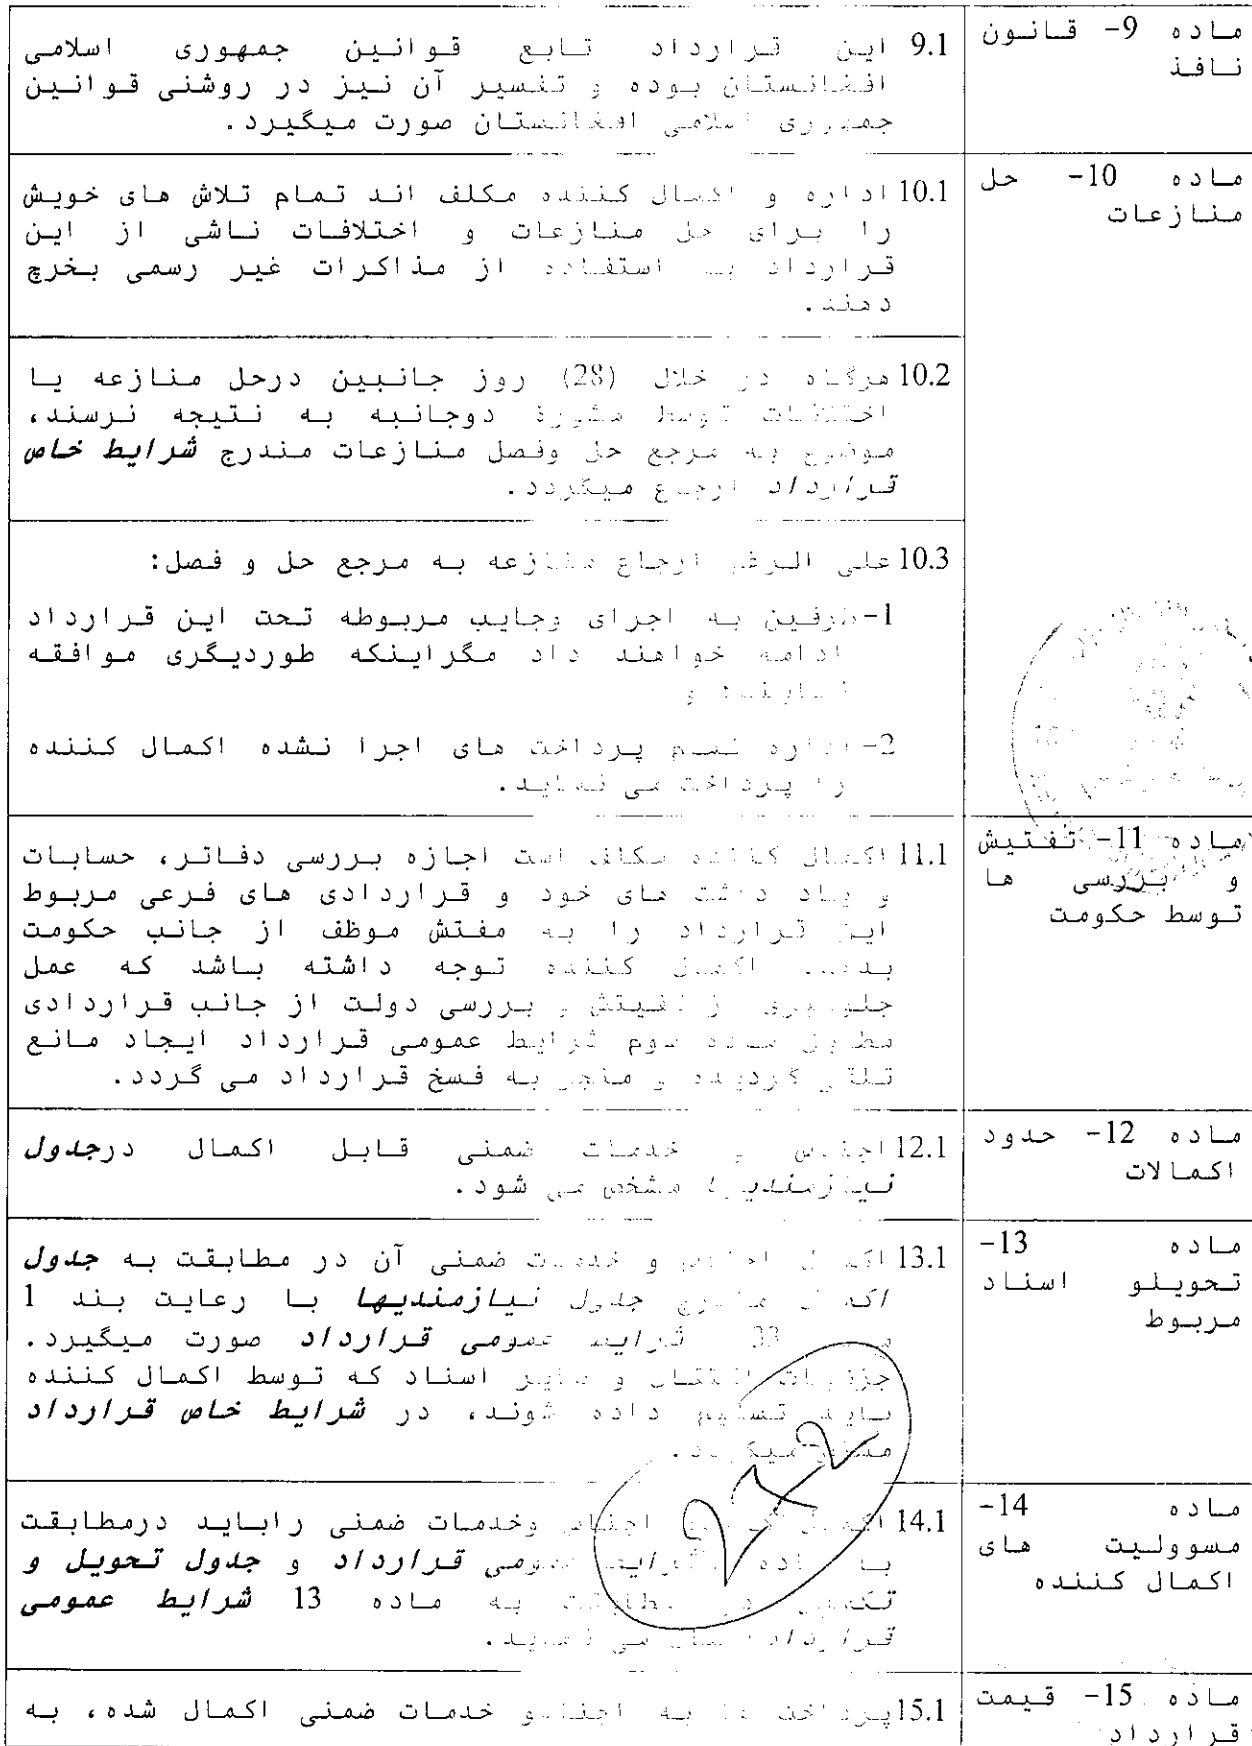 ماده 9- قانون
نافذ
9.1 این قرارداد تابع قوانین جمهوری اسلامی
افغانستان بوده و تفسیر آن نیز در روشنی قوانین
جمهوری اسلامی افغانستان صورت میگیرد.
ماده 10- حل
منازعات
10.1 اداره و اکمال کننده مکلف اند تمام تلاش های خویش
را برای حل منازعات و اختلافات ناشی از این
قرارداد با استفاده از مذاکرات غیر رسمی بخرچ
دهند.
10.2 هرگاه در خلال (28) روز جانبین درحل منازعه یا
اختلافات توسط مشورۀ دوجانبه به نتیجه نرسند،
موضوع به مرجع حل وفصل منازعات مندرج شرایط خاص
قرارداد ارجاع میگردد.
10.3 علی الرغم ارجاع منازعه به مرجع حل و فصل:
1- طرفین به اجرای وجایب مربوطه تحت این قرارداد
ادامه خواهند داد مگراینکه طوردیگری موافقه
نمایند؛ و
2- اداره تمام پرداخت های اجرا نشده اکمال کننده
را پرداخت می نماید.
ماده 11- تفتیش
و بررسی ها
توسط حکومت
11.1 اکمال کننده مکلف است اجازه بررسی دفاتر، حسابات
و یاد داشت های خود و قراردادی های فرعی مربوط
این قرارداد را به مفتش موظف از جانب حکومت
بدهد. اکمال کننده توجه داشته باشد که عمل
جلوگیری از تفیتش و بررسی دولت از جانب قراردادی
مطابق ماده سوم شرایط عمومی قرارداد ایجاد مانع
تلقی گردیده و منجر به فسخ قرارداد می گردد.
ماده 12- حدود
اکمالات
12.1 اجناس و خدمات ضمنی قابل اکمال درجدول
نیازمندیها مشخص می شود.
ماده 13-
تحویلو اسناد
مربوط
13.1 اکمال اجناس و خدمات ضمنی آن در مطابقت به جدول
اکمال مندرج جدول نیازمندیها با رعایت بند 1
33 شرایط عمومی قرارداد صورت میگیرد.
جزئیات انتقال و سایر اسناد که توسط اکمال کننده
باید تسلیم داده شوند، در شرایط خاص قرارداد
میگردد.
ماده 14-
مسوولیت های
اکمال کننده
14.1 اکمال کننده اجناس وخدمات ضمنی راباید درمطابقت
با ماده شرایط عمومی قرارداد و جدول تحویل و
تکمیل در مطابقت به ماده 13 شرایط عمومی
قرارداد اکمال می نماید.
ماده 15- قیمت
قرارداد
15.1 پرداخت ها به اجناسو خدمات ضمنی اکمال شده، به